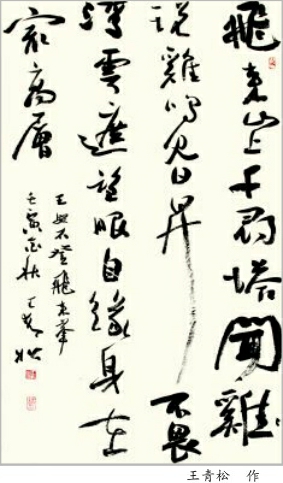 飛來山上千尋塔聞雞
說雞鳴見日昇不畏
浮雲遮望眼自緣身在
最高層
王安石登飛來峯
壬寅秋王青松
王青松 作